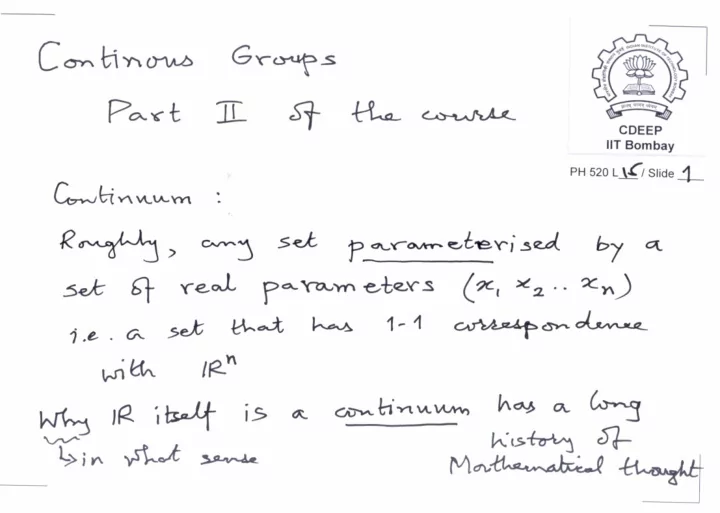 Continous Groups
Part II of the course
CDEEP
IIT Bombay
PH 520 L 15 / Slide 1
Continuum :
Roughly, any set parameterised by a
set of real parameters (x₁ x₂ .. xₙ)
i.e. a set that has 1-1 correspondence
with ℝⁿ
Why ℝ itself is a continuum has a long
history of
↳ in what sense
Mathematical thought